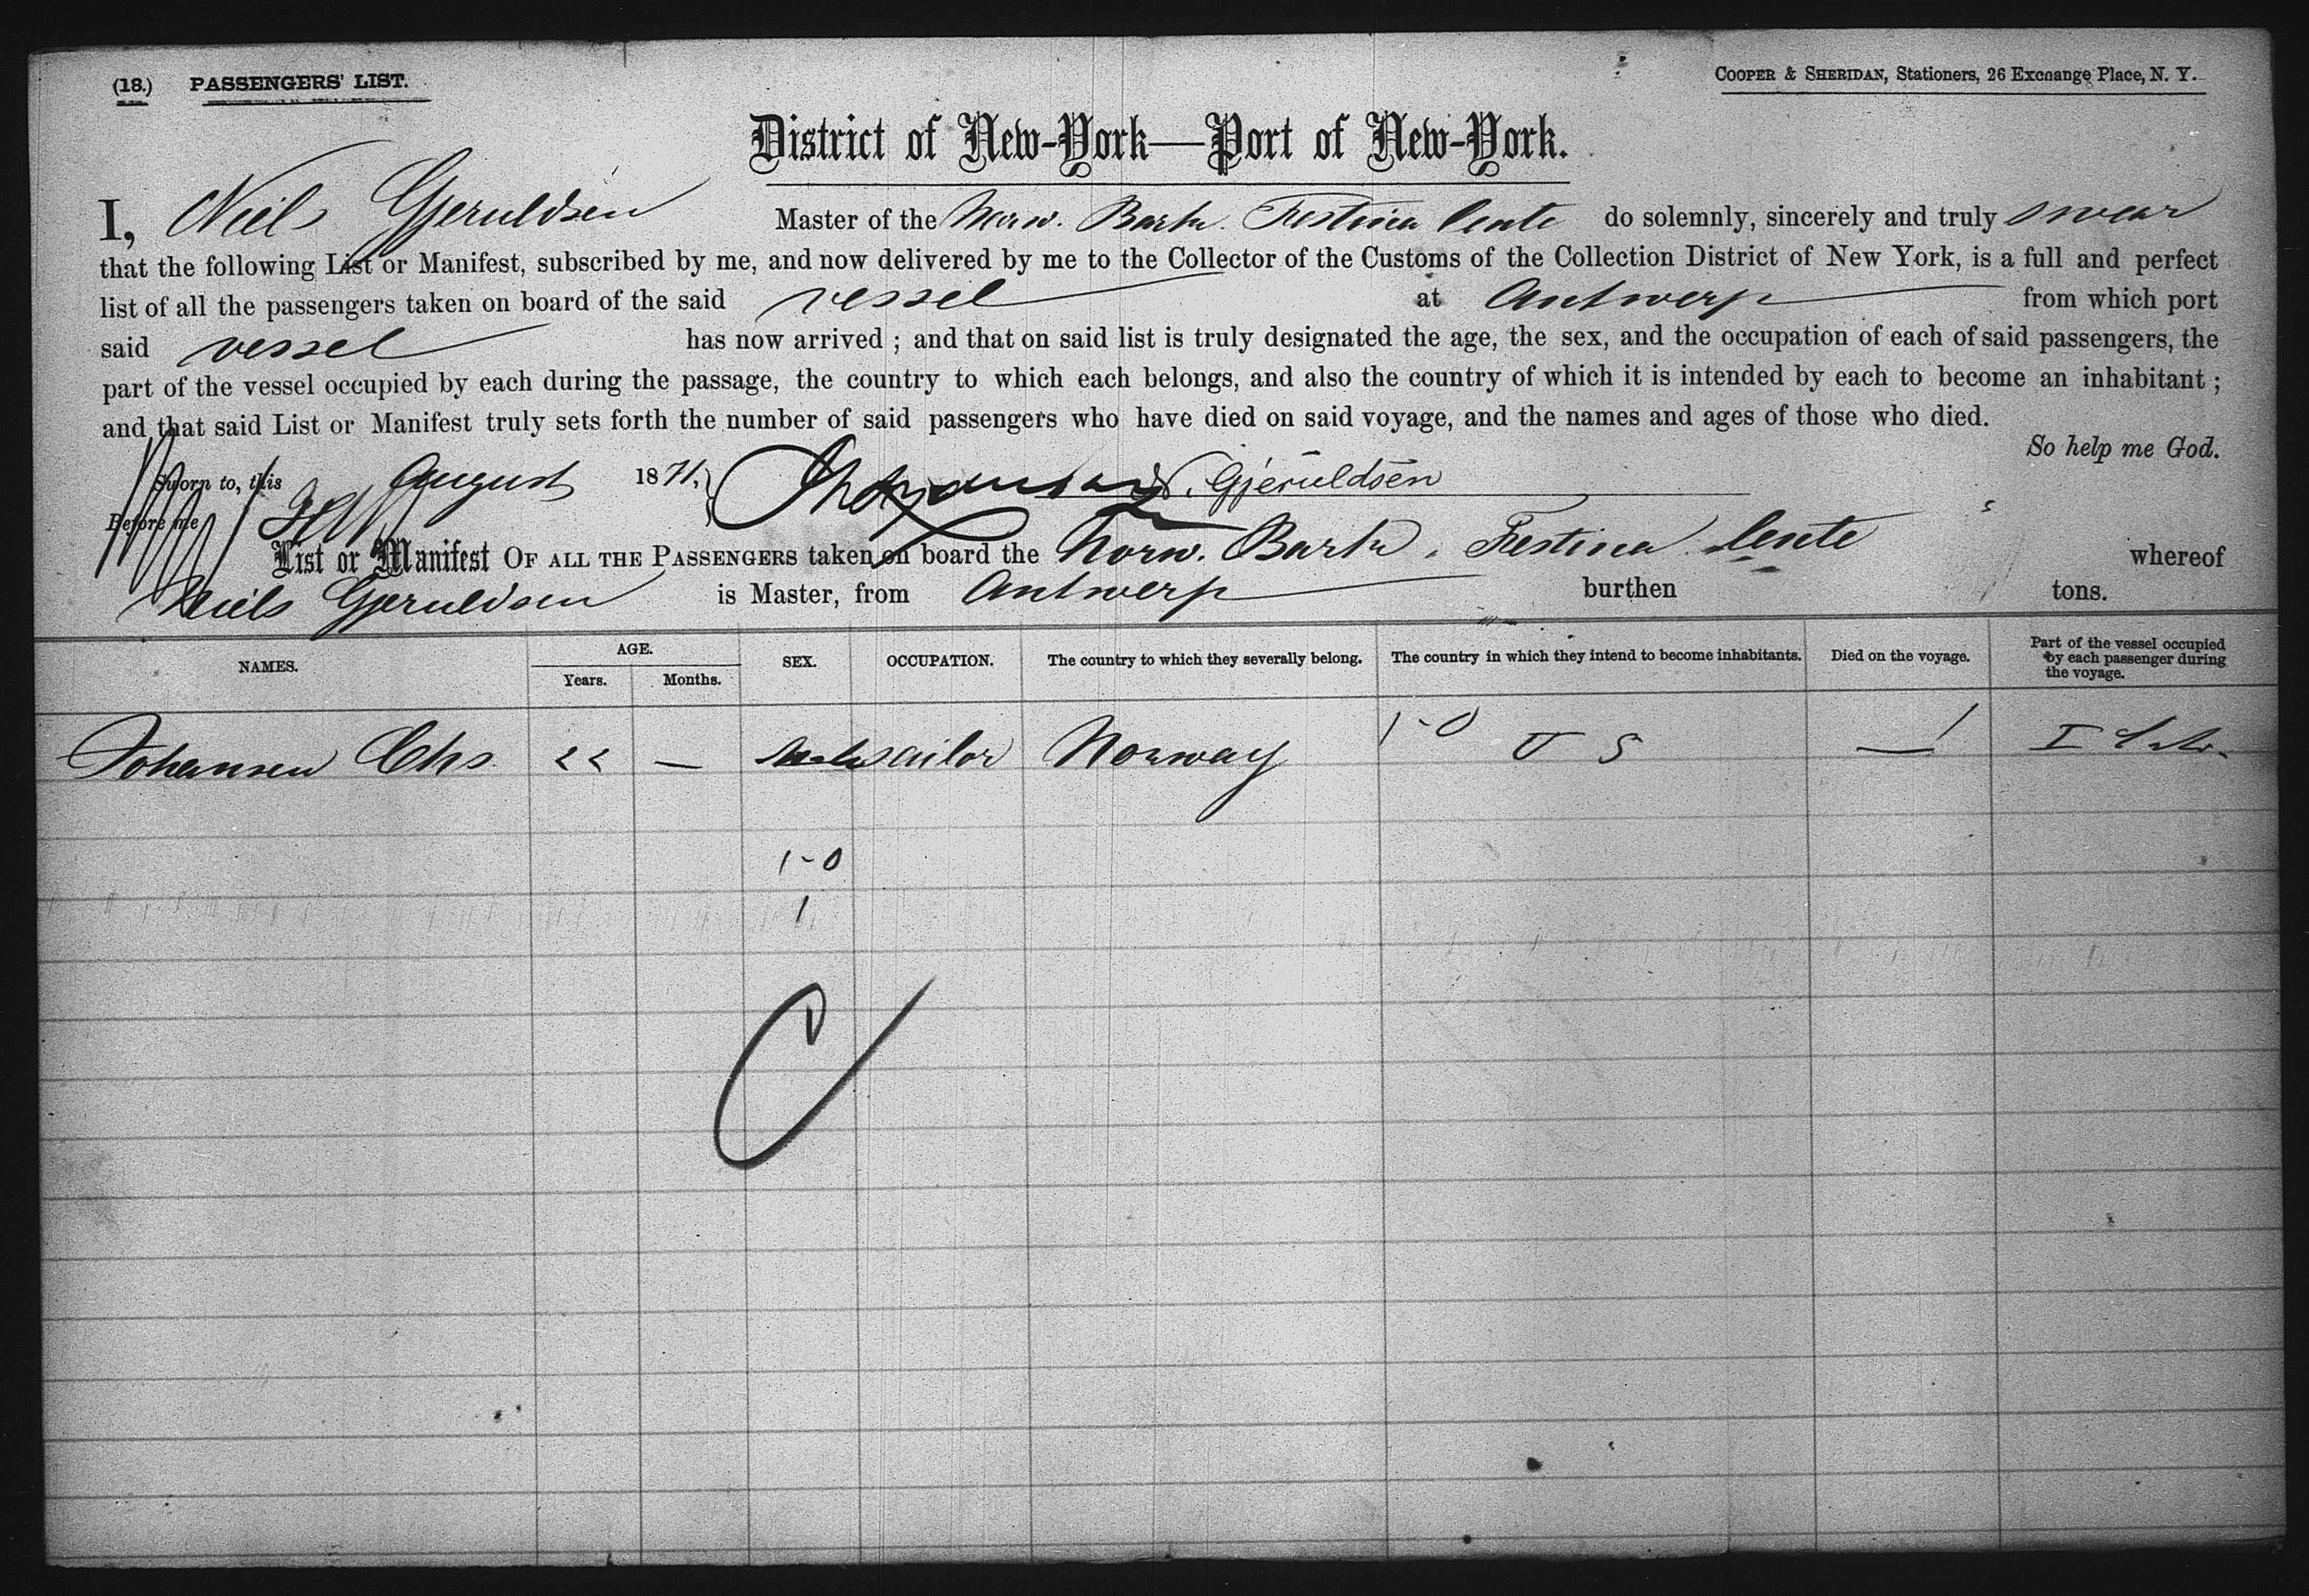 (18.) PASSENGERS' LIST.
COOPER & SHERIDAN, Stationers, 26 Exchange Place, N. Y.
District of New-York—Port of New-York.
I, Niels Gjeruldsen Master of the Norw. Bark. Festina lente do solemnly, sincerely and truly swear
that the following List or Manifest, subscribed by me, and now delivered by me to the Collector of the Customs of the Collection District of New York, is a full and perfect
list of all the passengers taken on board of the said vessel at Antwerp from which port
said vessel has now arrived ; and that on said list is truly designated the age, the sex, and the occupation of each of said passengers, the
part of the vessel occupied by each during the passage, the country to which each belongs, and also the country of which it is intended by each to become an inhabitant ;
and that said List or Manifest truly sets forth the number of said passengers who have died on said voyage, and the names and ages of those who died.
So help me God.
Sworn to, this August 1871, N. Gjeruldsen
Before me
List or Manifest OF ALL THE PASSENGERS taken on board the Norw. Bark. Festina lente whereof
Niels Gjeruldsen is Master, from Antwerp burthen tons.
NAMES. AGE. Years. Months. SEX. OCCUPATION. The country to which they severally belong. The country in which they intend to become inhabitants. Died on the voyage. Part of the vessel occupied by each passenger during the voyage.
Johansen Chs. 22 — Male sailor Norway 1-0 U S — 1 I
1-0
1
C